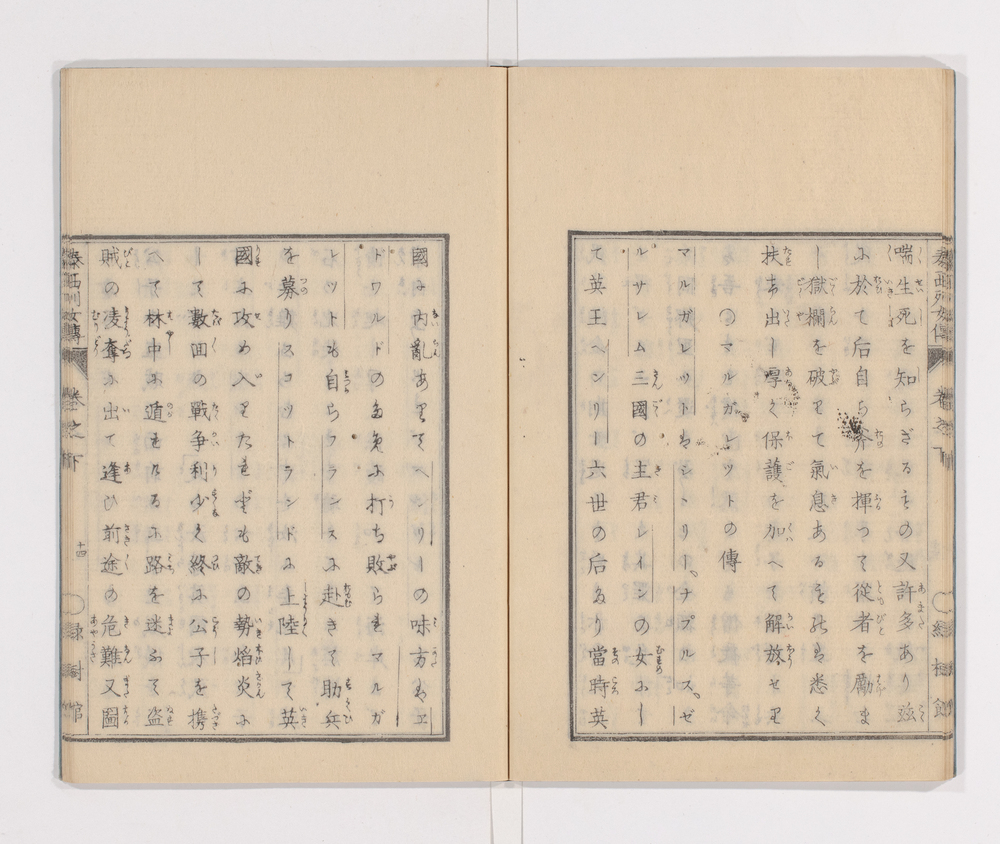 喘生死を知らざるもの又許多あり玆
に於て后自ら斧を揮つて從者を勵ま
し獄欄を破りて氣息あるを死は悉く
扶ホ出し厚く保護を加へて解放せり
〇マルガレットの傳
マルガレットはシヽリー、ナプルス、ゼ
ルサレム三國の主君レインの女にし
て英王ヘンリー六世の后なり當時英
國に内亂ありてヘンリーの味方はエ
ドワルドの為に打ち敗られマルガ
レットも自らフランスに赴きて助兵
を募りスコットランドに上陸して英
國に攻め入りたれども敵の勢焰炎に
して數回の戰争利少く終に公子を携
へて林中に遁れけるに路を迷ふて盗
賊の凌奪に出て逢ひ前途の危難又圖
泰西列女傳
卷之下
十四